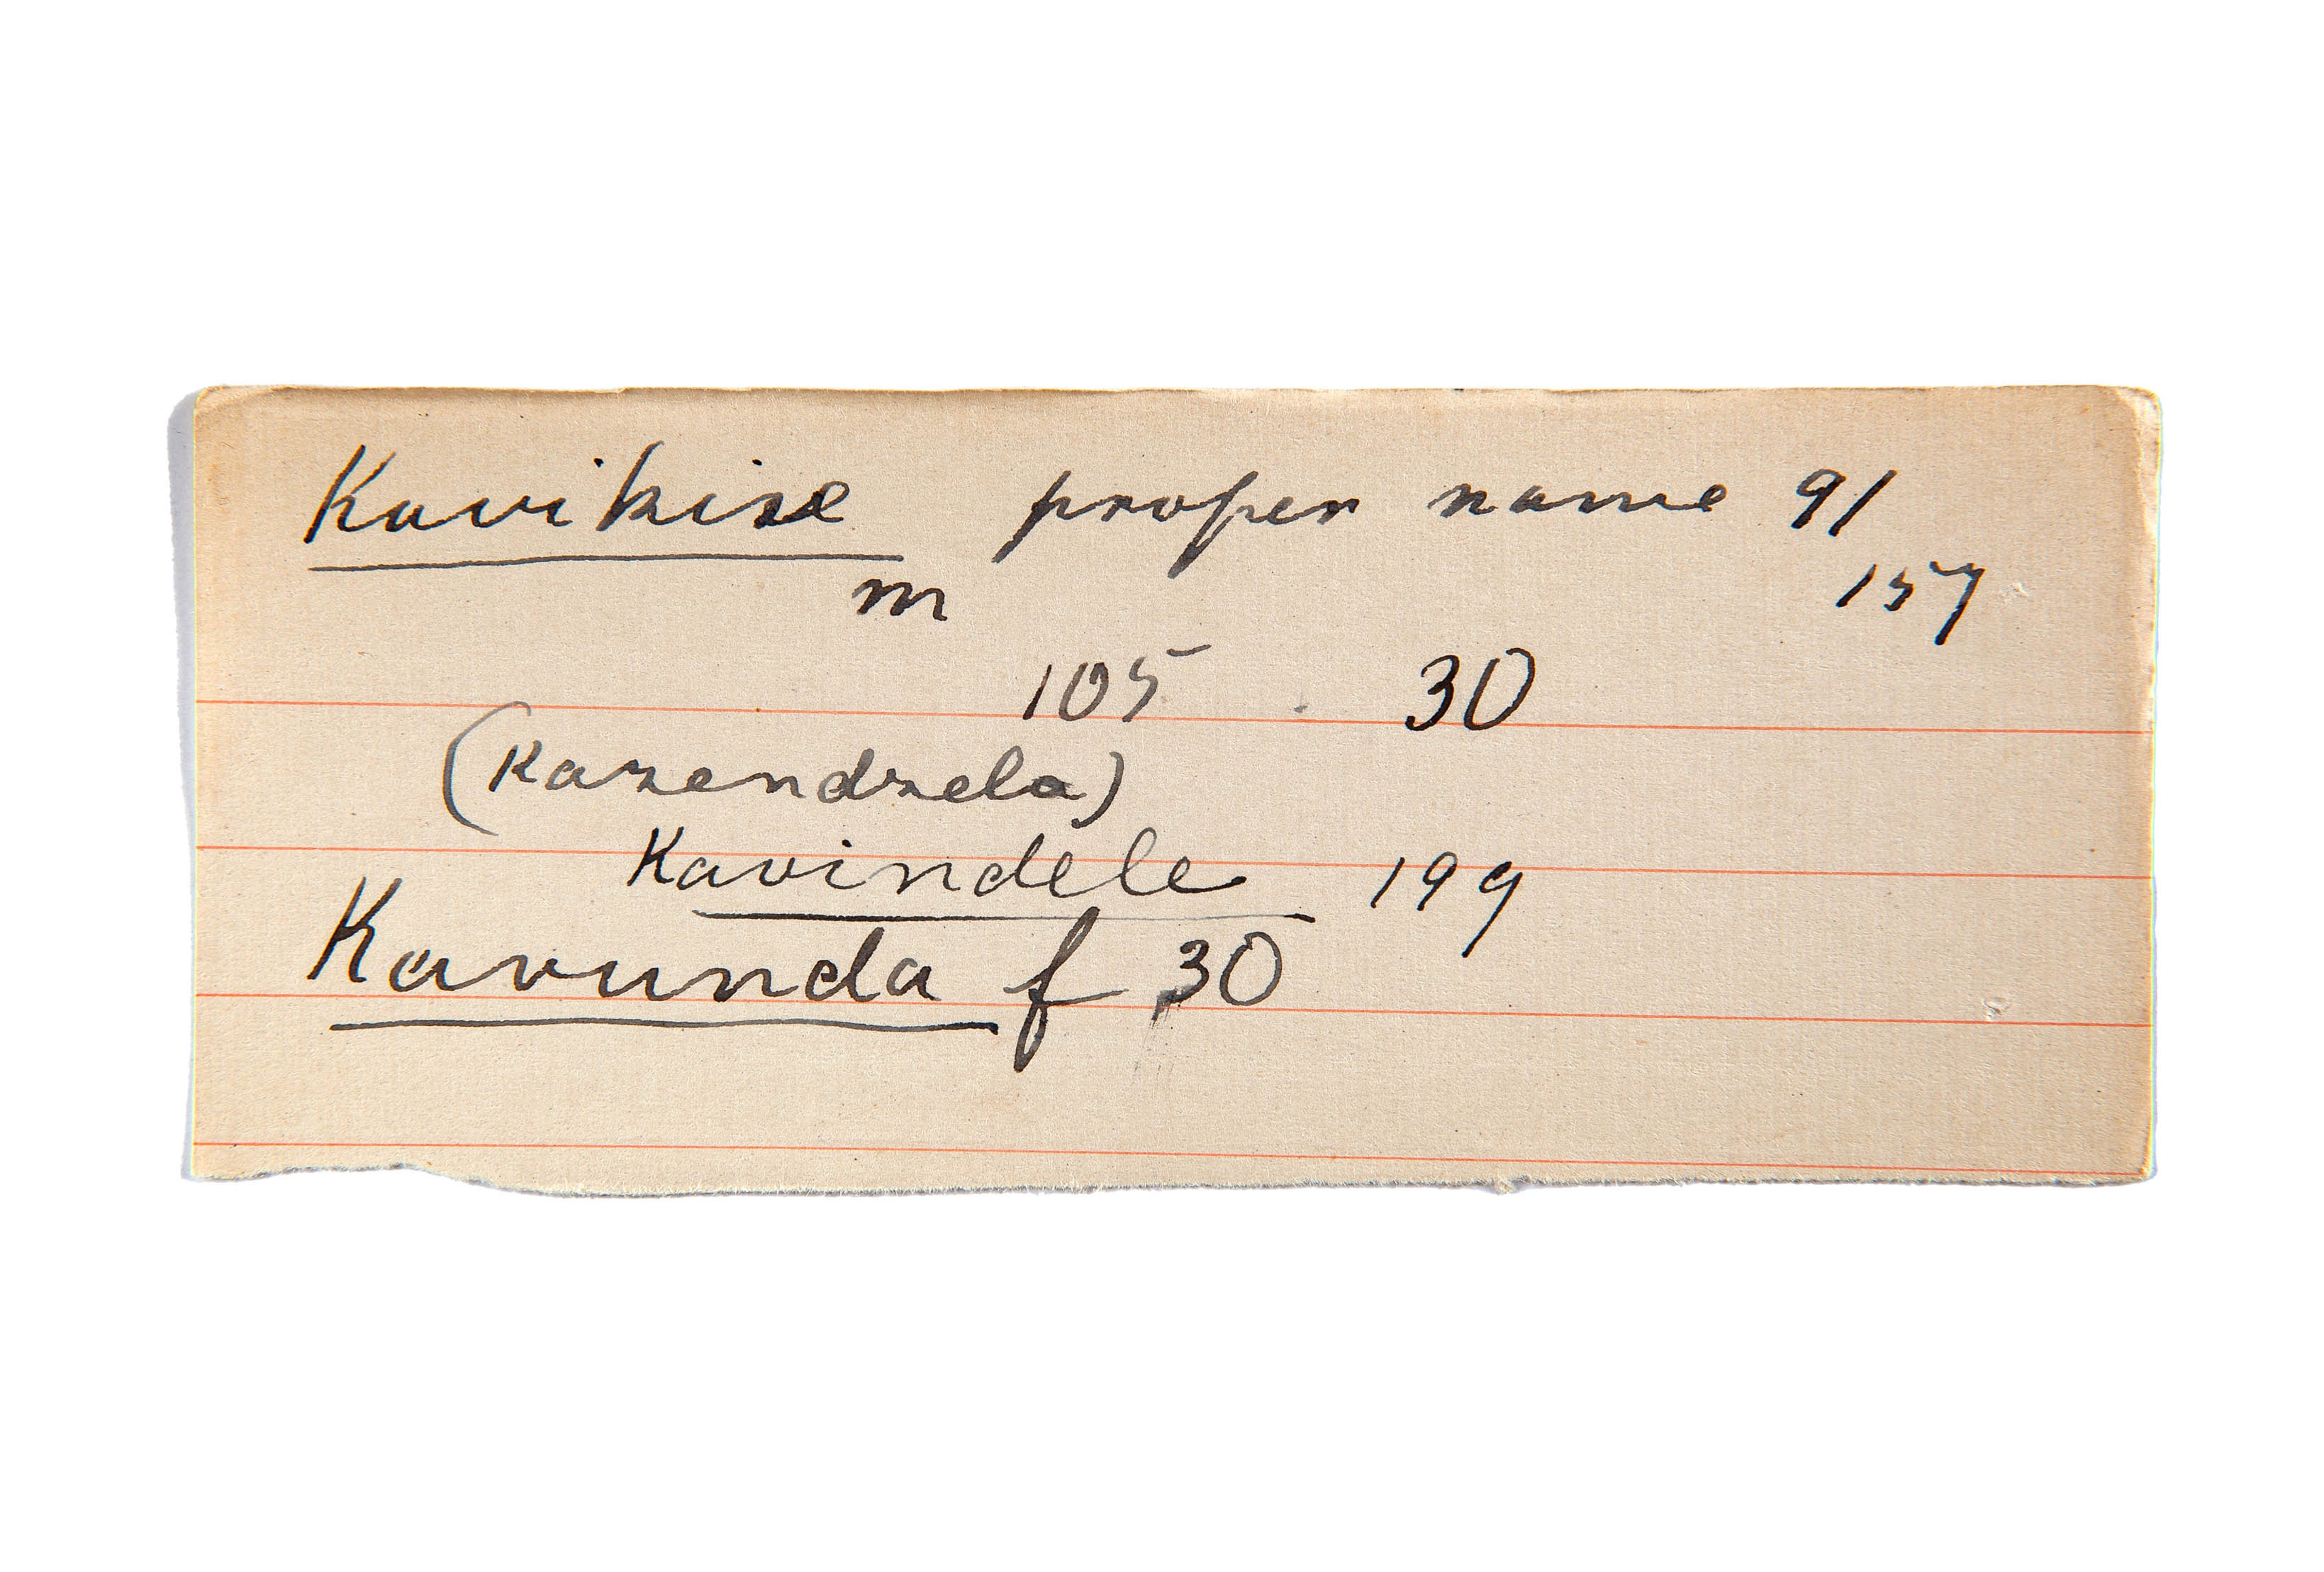 Kavikise proper name 91
m 157
105 30
(Kazendzela)
Kavindele 199
Kavunda f 30